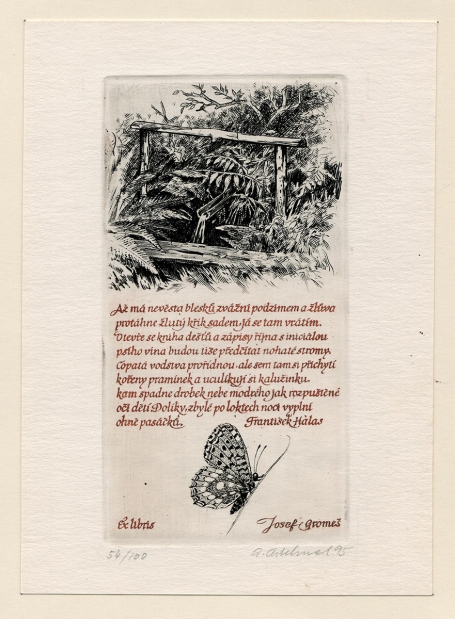 Až má nevěsta blesků zvážní podzimem a žluva
protáhne žlutý křik sadem, já se tam vrátím.
Otevře se kniha dešťů a zápisy října s iniciálou
psího vína budou tiše předčítat nohaté stromy.
Copatá vodstva prořídnou, ale sem tam si přichytí
kořeny pramínek a uculíkují si kalužinku.
kam spadne drobek nebe modrého jak rozpuštěné
oči dětí Dolíky, zbylé po loktech noci vyplní
ohně pasáčků. František Halas
Ex libris Josef Gromeš
54/100 95